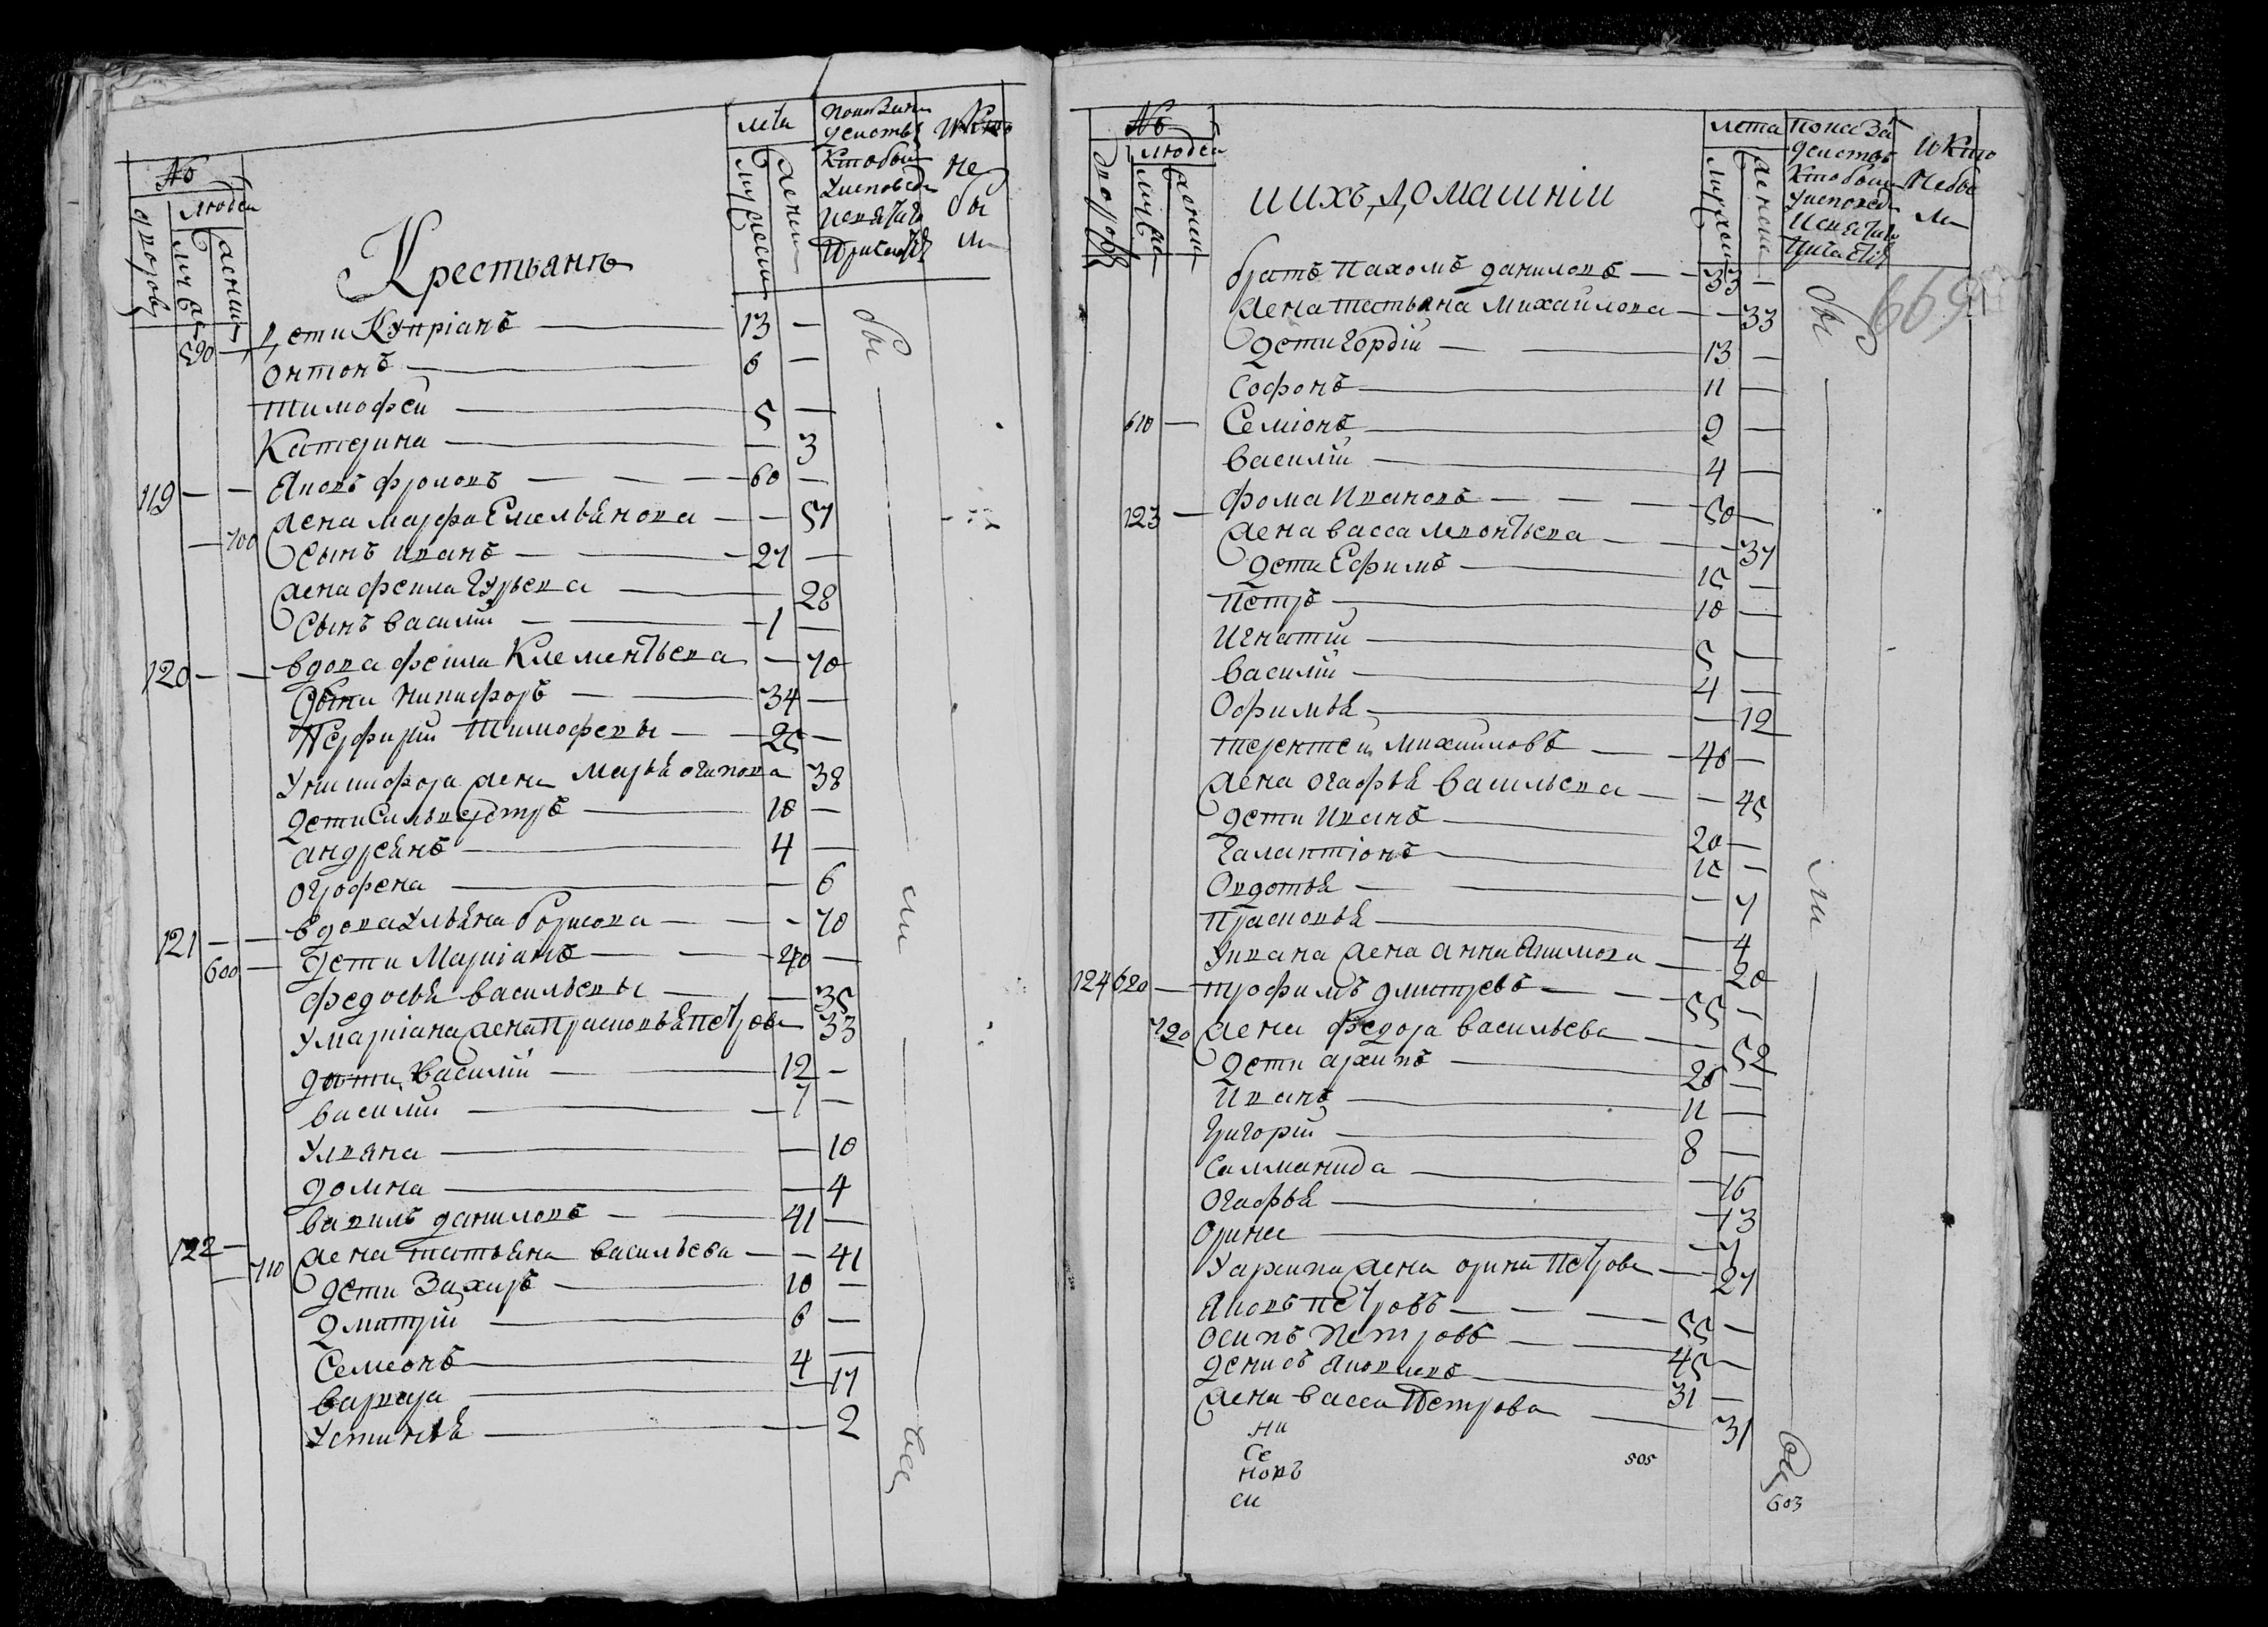 №
людей
дворовъ
муска
женска
лѣта
мужеска
женска
Показания
действъ
Кто были
У исповеди
И святаго
Причастія
И Кто
не
бы
ли
Крестьянъ
590 — дети Купріянъ — 13 —
Онтонъ — 6 —
Тимофей — 5 —
Катерина — 3
119 — — Яковъ фроловъ — 60 —
жена марфа Емельянова — — 57
— 700 Сынъ иванъ — 27 —
жена фекла Гурьева — 28
Сынъ василий — 1 —
120 — — вдова фекла Клементьева — 70
дѣти никифоръ — 34 —
Перфирий тимофевы — 25 —
У никифора жена марья осипова 38
дети Сильвестръ — 10 —
андреянъ — 4 —
огрофена — 6
121 — — вдова ульяна борисова — — 70
600 — дети Маркіанъ — 40 —
федосья васильевы — 35
У маркіана жена Прасковья петрова 33
дѣти василий — 12 —
василий — 7 —
Ульяна — 10
домна — 4
вавилъ даниловъ — 41 —
122 — 710 жена татьяна васильева — — 41
дети Захаръ — 10 —
дмитрій — 6 —
Семеонъ — 4 —
варвара — 17
Устинья — 2
бы
ли
все
№
людей
дворовъ
муска
женски
ихъ, домашніи
лета
мужеска
женска
показа
действъ
Кто были
У исповеди
И святаго
Прича стія
И Кто
Небы
ли
669
братъ пахомъ даниловъ — — 33 —
жена татьяна михайлова — — 33
дети Гордій — 13 —
Софонъ — 11 —
610 — Семіонъ — 9 —
василій — 4 —
123 — фома ивановъ — 50 —
жена васса леонтьева — — 37
дети Ефимъ — 15 —
петръ — 10 —
игнатий — 5 —
василий — 4 —
Офимья — 12
терентей михайловъ — 46 —
жена огафья васильева — — 45
дети иванъ — 20 —
Галактіонъ — 15 —
Овдотья — 7
прасковья — 4
У ивана жена анна Якимова — 20
124 620 — трофимъ дмитревъ — 55 —
720 жена федора васильева — 52
дети архипъ — 26 —
иванъ — 11 —
григорій — 8 —
Саламанида — 16
огафья — 13
орина — 7
У архипа жена орина петрова — 27
Яковъ петровъ — 55 —
осипъ петровъ — 45 —
денисъ Яковлевъ — 31 —
жена васса петрова — 31
бы
ли
все
505
603